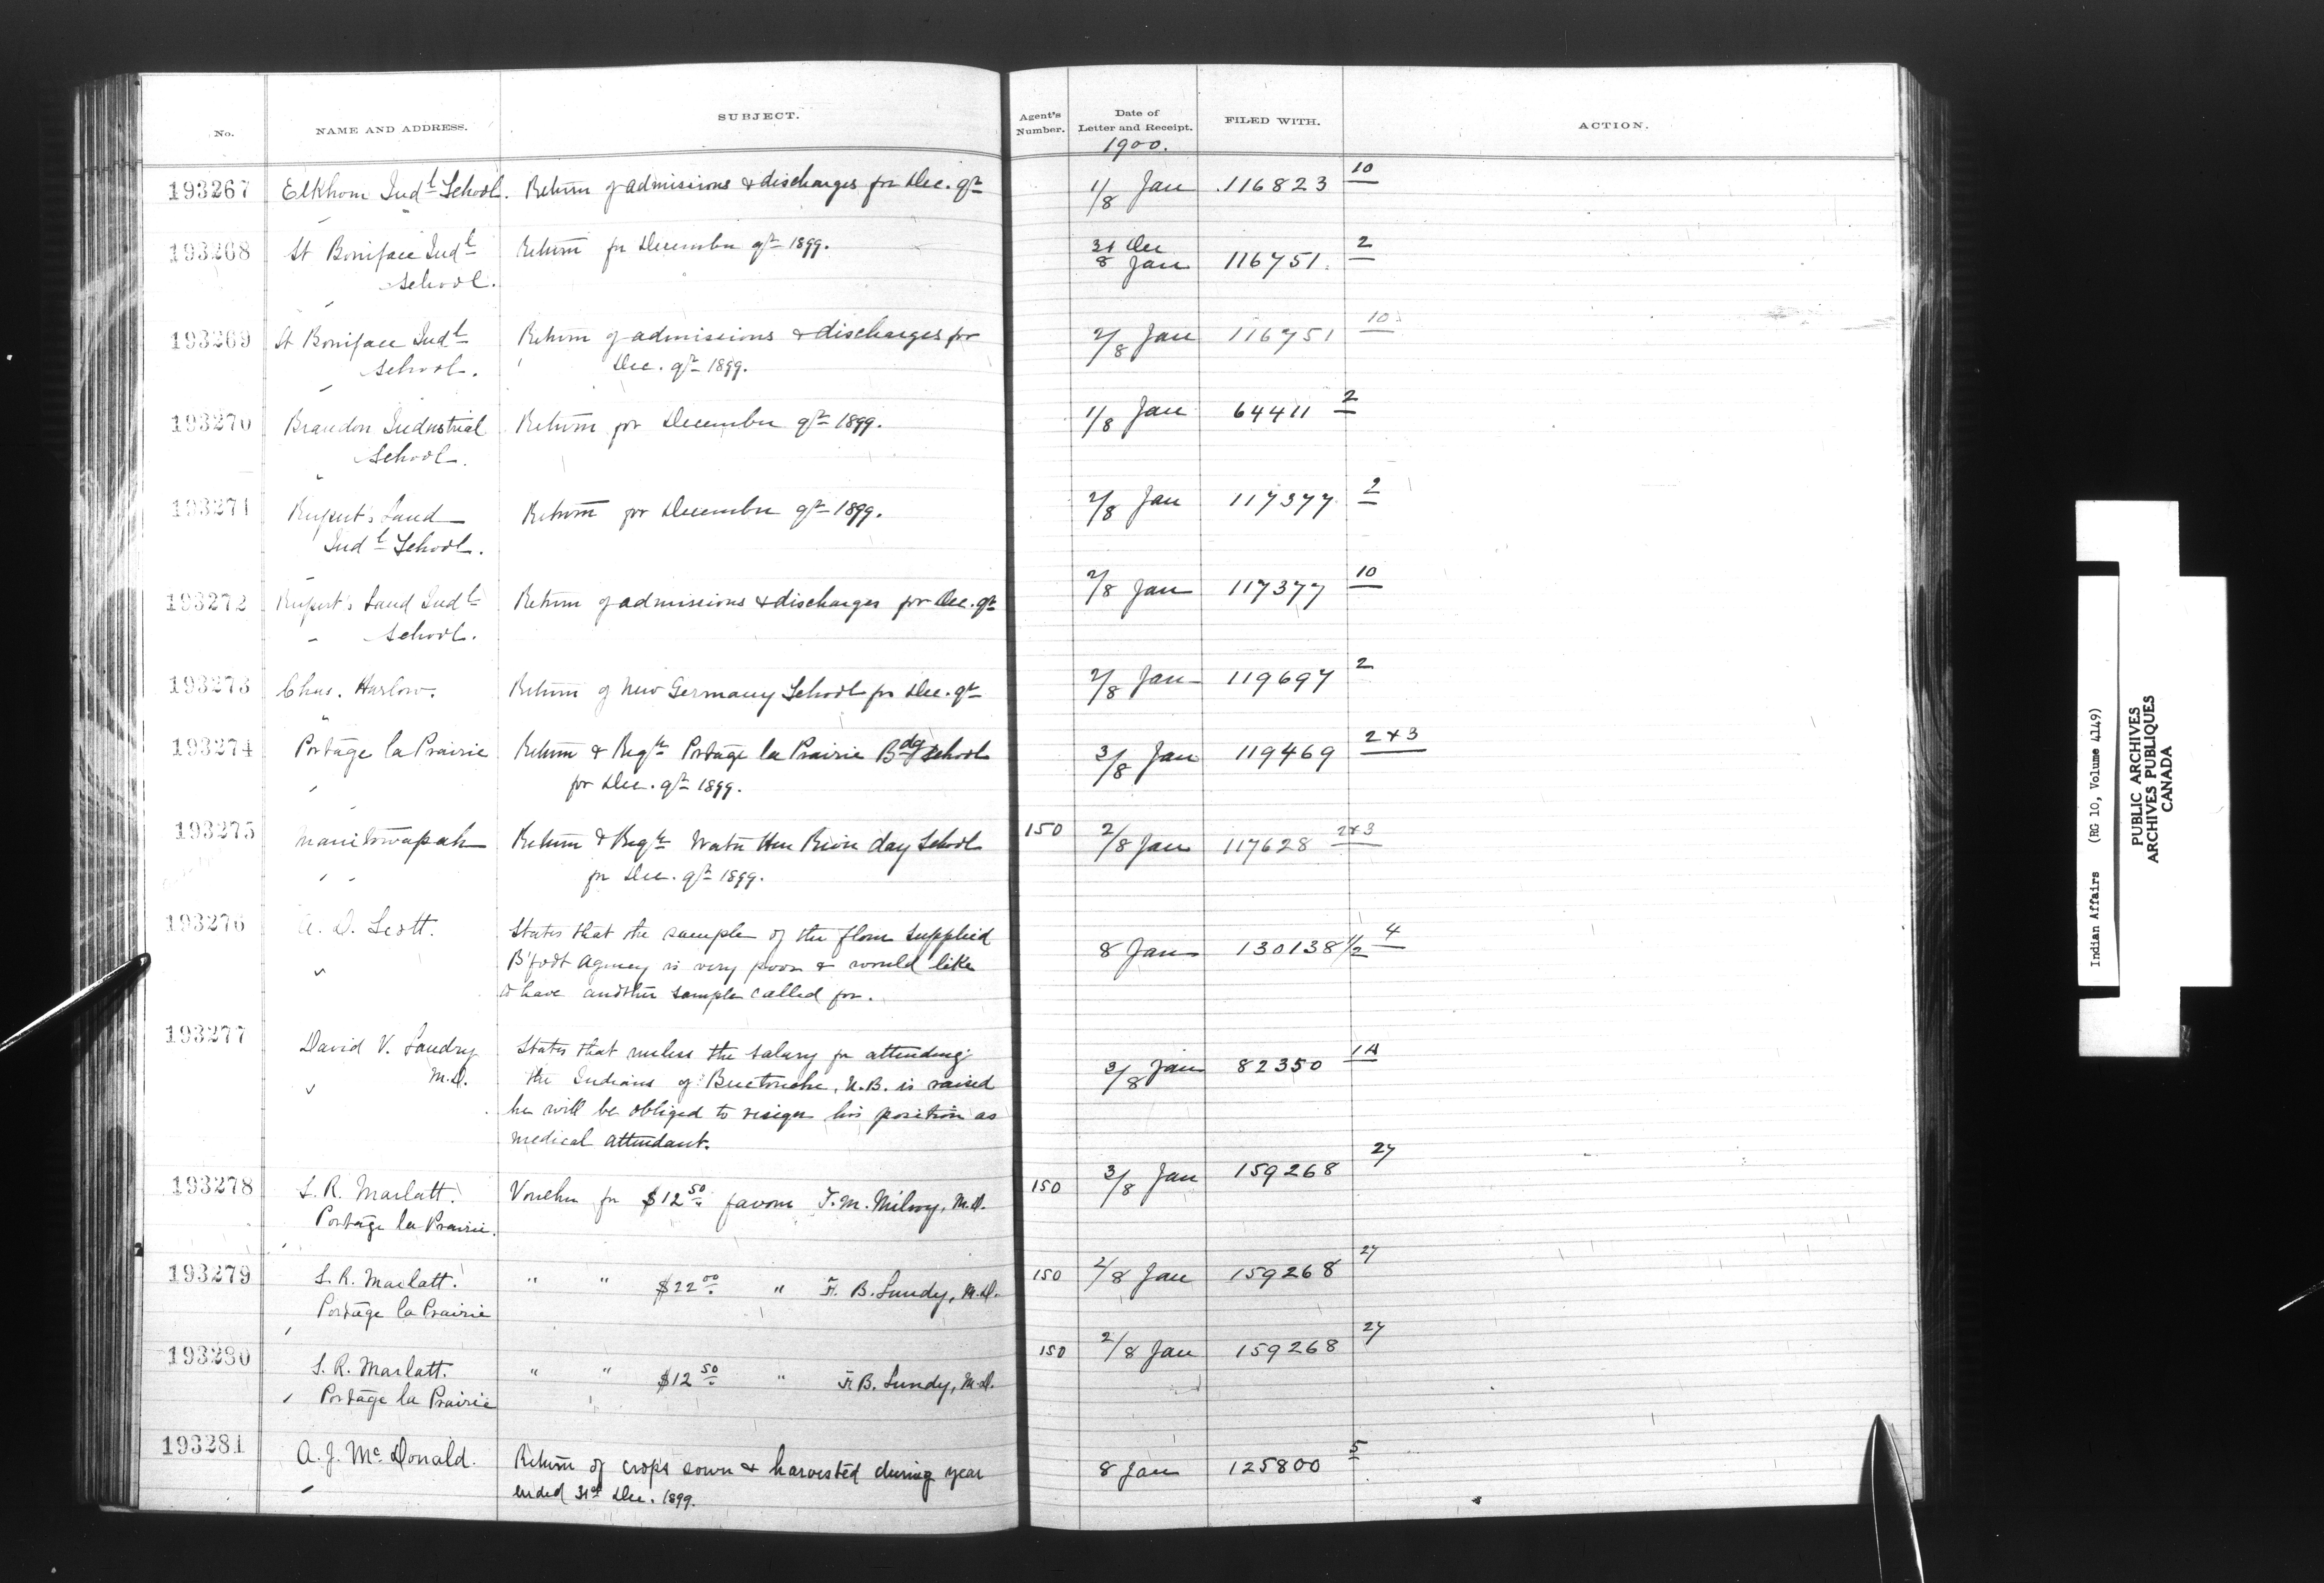 No. NAME AND ADDRESS. SUBJECT. Agent's Number. Date of Letter and Receipt. FILED WITH. ACTION.
1900.
193267 Elkhorn Indl School. Return of admissions & discharges for Dec. qr 1/8 Jan 116823 10
193268 St Boniface Indl Return for December qr 1899. 31 Dec
School. 8 Jan 116751. 2
193269 St Boniface Indl Return of admissions & discharges for 2/8 Jan 116751 10
School. Dec. qr 1899.
193270 Brandon Industrial Return for December qr 1899. 1/8 Jan 64411 2
School.
193271 Rupert's Land Return for December qr 1899. 2/8 Jan 117377 2
Indl School.
193272 Rupert's Land Indl Return of admissions & discharges for Dec. qr 2/8 Jan 117377 10
School.
193273 Chas. Harlow. Return of New Germany School for Dec. qr 2/8 Jan 119697 2
193274 Portage la Prairie Return & Reqn Portage la Prairie Bdg School 3/8 Jan 119469 2 & 3
for Dec. qr 1899.
193275 Manitowapah Return & Reqn Water Hen River day School 150 2/8 Jan 117628 2 & 3
for Dec. qr 1899.
193276 A. D. Scott. States that the sample of the flour supplied
B'foot Agency is very poor & would like 8 Jan 130138 1/2 4
to have another sample called for.
193277 David V. Landry States that unless the salary for attending
M.D. the Indians of Buctouche, N.B. is raised 3/8 Jan 82350 1A
he will be obliged to resign his position as
medical attendant.
193278 S. R. Marlatt. Voucher for $12 50 favour T. M. Milroy, M.D. 150 3/8 Jan 159268 27
Portage la Prairie.
193279 S. R. Marlatt. " " $22 00 " F. B. Lundy, M.D. 150 2/8 Jan 159268 27
Portage la Prairie
193280 S. R. Marlatt. " " $12 50 " F. B. Lundy, M.D. 150 2/8 Jan 159268 27
Portage la Prairie
193281 A. J. Mc Donald. Return of crops sown & harvested during year 8 Jan 125800 5
ended 31st Dec. 1899.
Indian Affairs (RG 10, Volume 4149)
PUBLIC ARCHIVES
ARCHIVES PUBLIQUES
CANADA